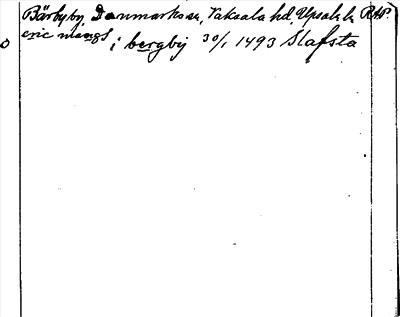 Bärbyby, Danmarks sn, Vaksala hd, Upsala l. RAP.
eric mangs i bergby 30/1 1493 Slafsta